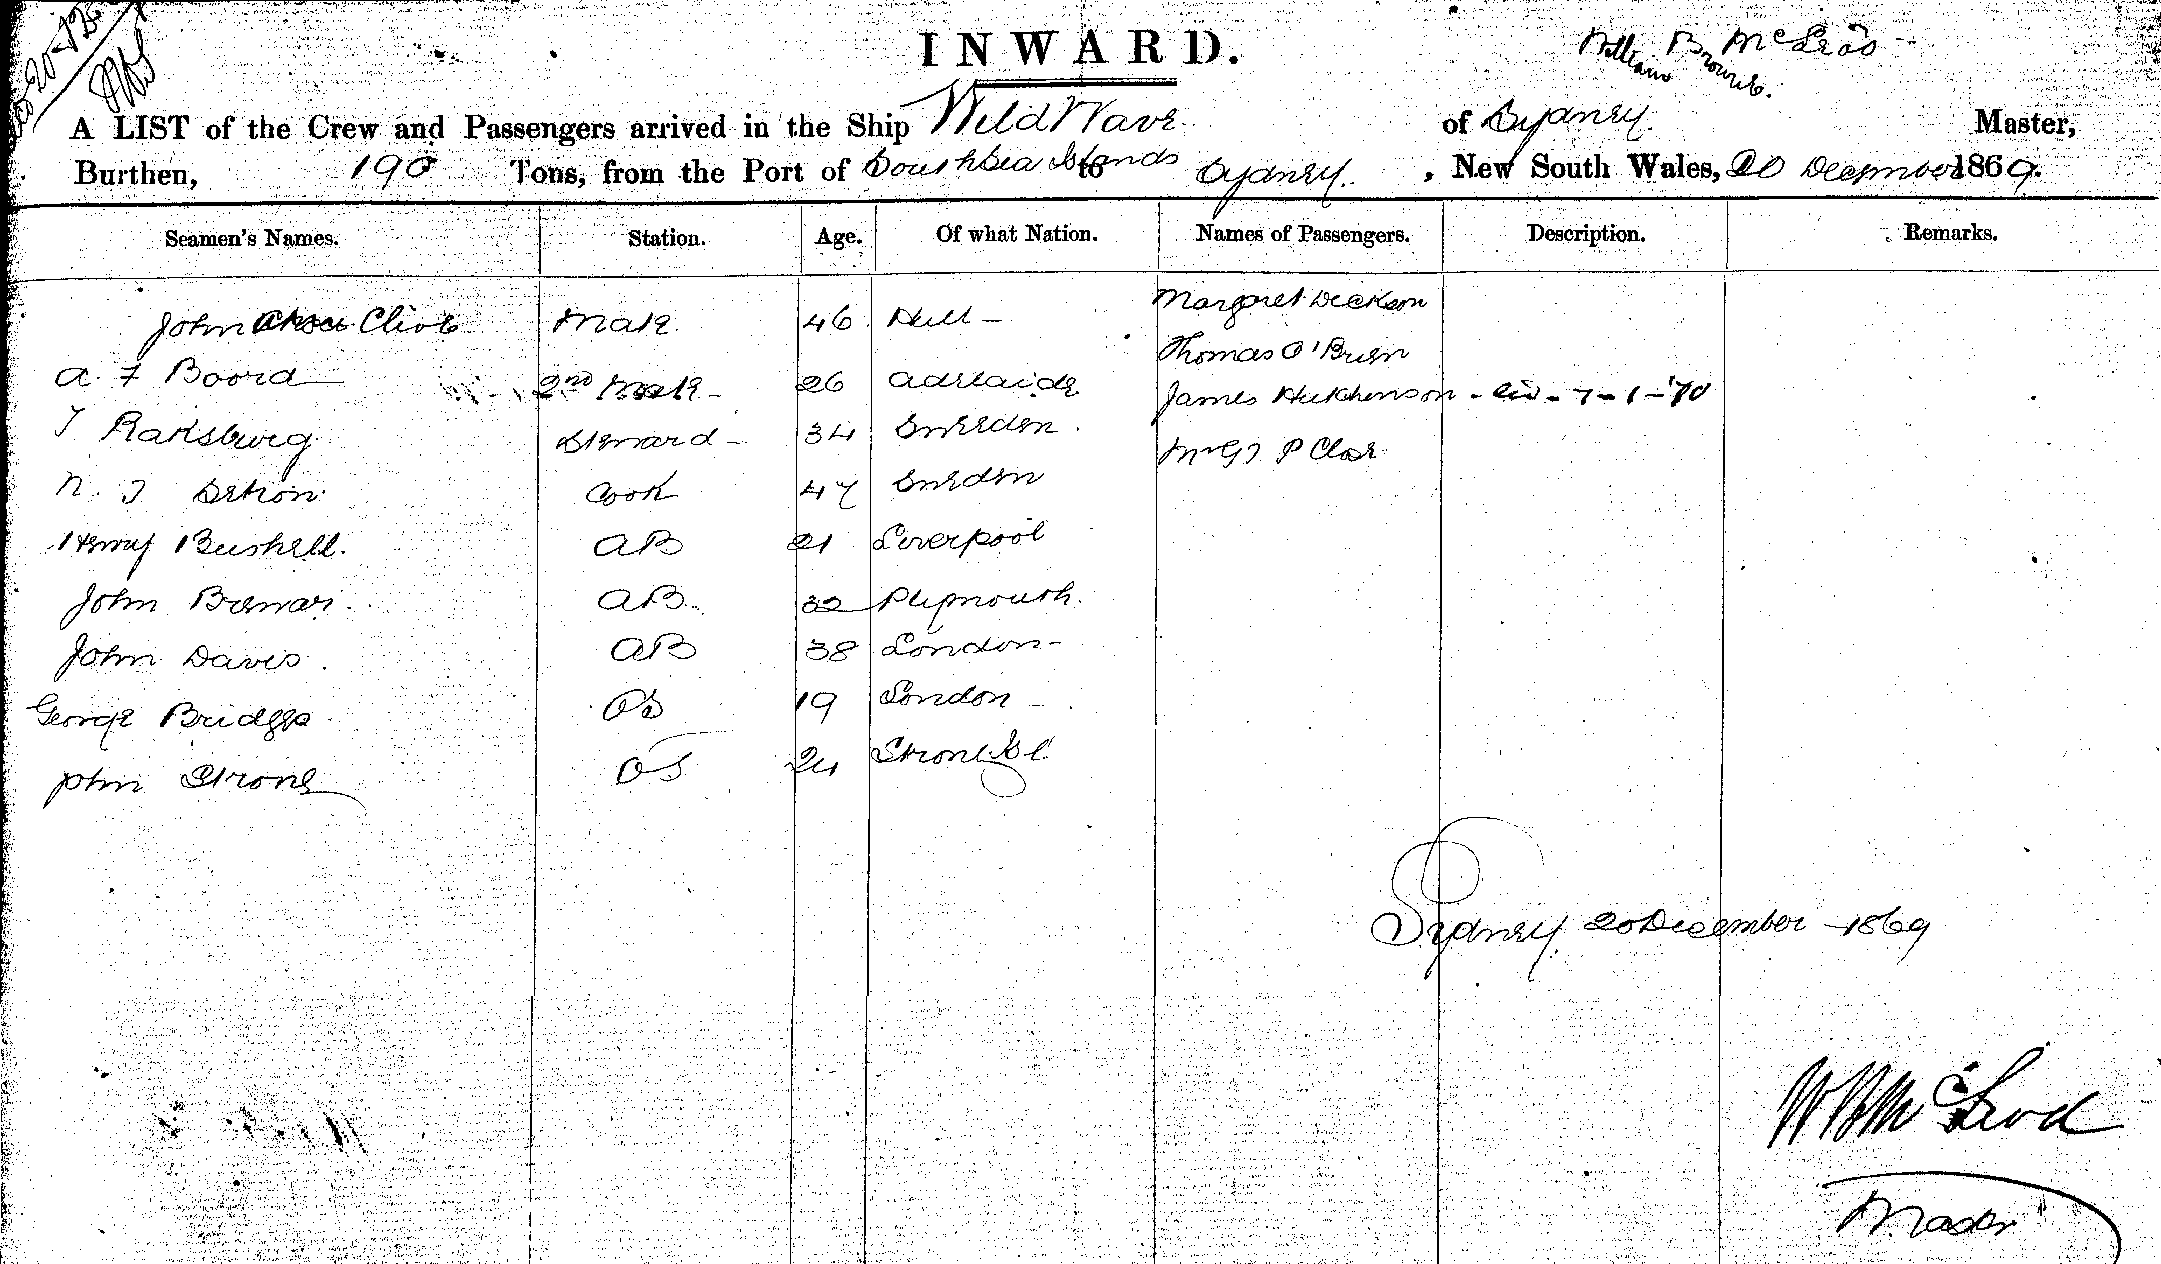 INWARD.
William Browne McLeod
A LIST of the Crew and Passengers arrived in the Ship Wild Wave of Sydney Master,
Burthen, 190 Tons, from the Port of South Sea Islands to Sydney, New South Wales, 20 December 1869.
Seamen's Names. Station. Age. Of what Nation. Names of Passengers. Description. Remarks.
John Clive Mate 46 Hull - Margaret Dickson
Thomas O'Brien
A. F Boord 2nd Mate - 26 Adelaide James Hutchinson - - 7-1-'70
T Steward - 34 Sweden. P Close
N. J Cook 47 Sweden
Henry Bushell. AB 21 Liverpool
John AB. 32 Plymouth.
John Davis. AB 38 London -
George Bridges OS 19 London -
John Strong OS 24 Strong Isl.
Sydney 20 December 1869
W B McLeod
Master